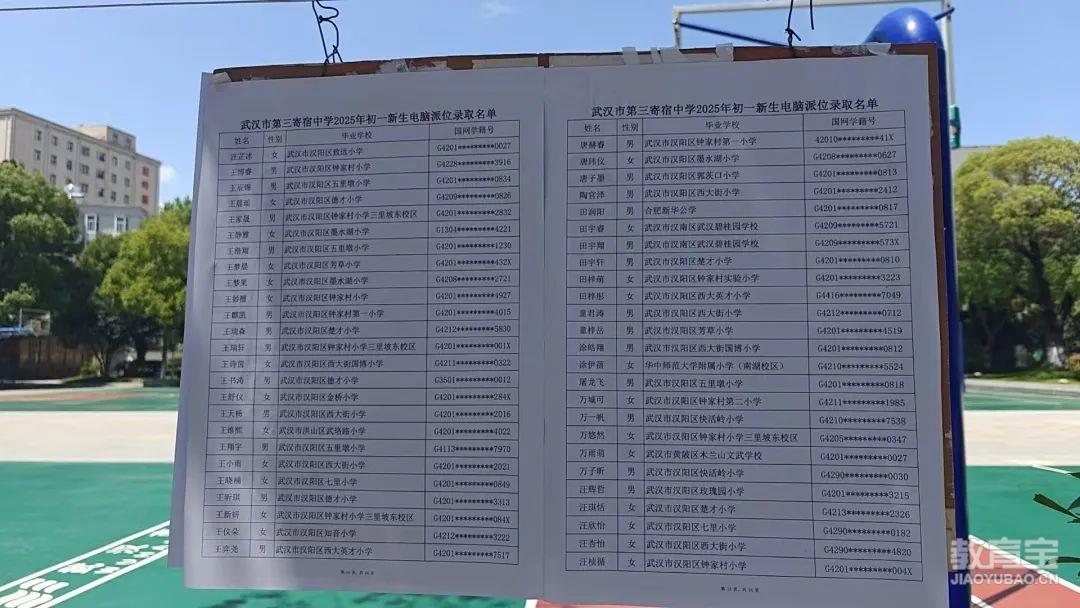 武汉市第三寄宿中学2025年初一新生电脑派位录取名单
姓名 性别 毕业学校 国网学籍号
汪芷冰 女 武汉市汉阳区致远小学 G4201*********0027
王博睿 男 武汉市汉阳区钟家村小学 G4228*********3916
王辰锦 男 武汉市汉阳区五里墩小学 G4201*********0834
王晨瑶 女 武汉市汉阳区德才小学 G4209*********0826
王家晟 男 武汉市汉阳区钟家村小学三里坡东校区 G4201*********2832
王静雅 女 武汉市汉阳区墨水湖小学 G1304*********4221
王楷翔 男 武汉市汉阳区五里墩小学 G4201*********1230
王梦晨 女 武汉市汉阳区芳草小学 G4201*********432X
王梦果 女 武汉市汉阳区墨水湖小学 G4208*********2721
王妙檀 女 武汉市汉阳区钟家村小学 G4201*********4927
王麒凯 男 武汉市汉阳区钟家村第一小学 G4201*********4015
王瑞森 男 武汉市汉阳区楚才小学 G4212*********5830
王瑞轩 男 武汉市汉阳区钟家村小学三里坡东校区 G4201*********001X
王诗茵 女 武汉市汉阳区西大街国博小学 G4211*********0322
王书鸿 男 武汉市汉阳区德才小学 G3501*********0012
王舒仪 女 武汉市汉阳区金桥小学 G4201*********284X
王天杨 男 武汉市汉阳区西大街小学 G4201*********2016
王维熙 女 武汉市洪山区武珞路小学 G4201*********4022
王翔宇 男 武汉市汉阳区五里墩小学 G4113*********7970
王小雨 女 武汉市汉阳区西大街小学 G4201*********2021
王晓楠 女 武汉市汉阳区七里小学 G4201*********0849
王昕琪 男 武汉市汉阳区德才小学 G4201*********3313
王新妍 女 武汉市汉阳区钟家村小学三里坡东校区 G4201*********084X
王仪朵 女 武汉市汉阳区知音小学 G4212*********3222
王弈尧 男 武汉市汉阳区西大英才小学 G4201*********7517
武汉市第三寄宿中学2025年初一新生电脑派位录取名单
姓名 性别 毕业学校 国网学籍号
唐赫睿 男 武汉市汉阳区钟家村第一小学 42010*********41X
唐玮仪 女 武汉市汉阳区墨水湖小学 G4208*********0627
唐子墨 男 武汉市汉阳区郭茨口小学 G4201*********0813
陶官泽 男 武汉市汉阳区西大街小学 G4201*********2412
田润阳 男 合肥新华公学 G4201*********0817
田宇睿 女 武汉市汉南区武汉碧桂园学校 G4209*********5721
田宇翔 男 武汉市汉南区武汉碧桂园学校 G4209*********573X
田宇轩 男 武汉市汉阳区楚才小学 G4201*********0810
田梓萌 女 武汉市汉阳区钟家村实验小学 G4201*********3223
田梓彤 女 武汉市汉阳区西大英才小学 G4416*********7049
童君涛 男 武汉市汉阳区西大街小学 G4212*********0712
童梓岳 男 武汉市汉阳区芳草小学 G4201*********4519
涂皓翔 男 武汉市汉阳区西大街国博小学 G4201*********0812
涂伊蓓 女 华中师范大学附属小学（南湖校区） G4210*********5524
屠龙飞 男 武汉市汉阳区五里墩小学 G4201*********0818
万城可 女 武汉市汉阳区钟家村第二小学 G4211*********1985
万一帆 男 武汉市汉阳区快活岭小学 G4210*********7538
万悠然 女 武汉市汉阳区钟家村小学三里坡东校区 G4205*********0347
万雨萌 女 武汉市黄陂区木兰山文武学校 G4201*********0027
万子昕 男 武汉市汉阳区快活岭小学 G4290*********0030
汪辉哲 男 武汉市汉阳区玫瑰园小学 G4201*********3215
汪琪恬 女 武汉市汉阳区楚才小学 G4213*********2326
汪欣怡 女 武汉市汉阳区七里小学 G4290*********0182
汪杏怡 女 武汉市汉阳区西大街小学 G4290*********4820
汪桢循 女 武汉市汉阳区钟家村小学 G4201*********004X
教育宝
JIAOYUBAO.CN